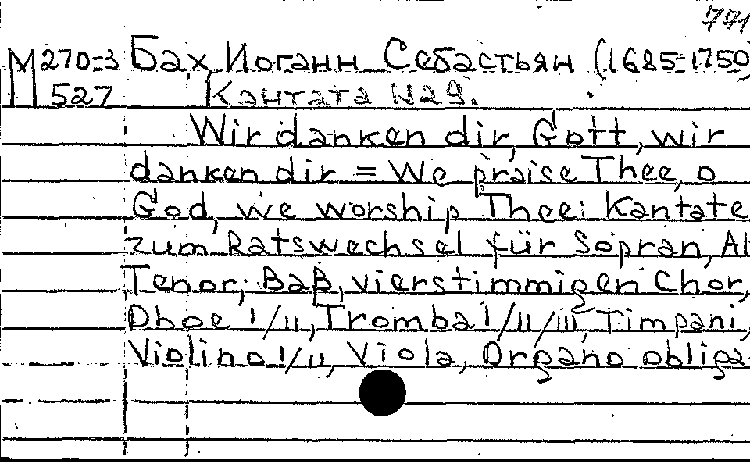 791
М 270=3 Бах, Иоганн Себастьян (1685-1750
527 Кантата №29.
Wir danken dir, Gott, wir
danken dir = We praise Thee, o
God, we worship Thee: Kantate
zum Ratswechsel für Sopran, Al
Tenor, Baß, vierstimmigen Chor,
Oboe I/II, Tromba I/II/III, Timpani,
Violino I/II, Viola, Organo obliga